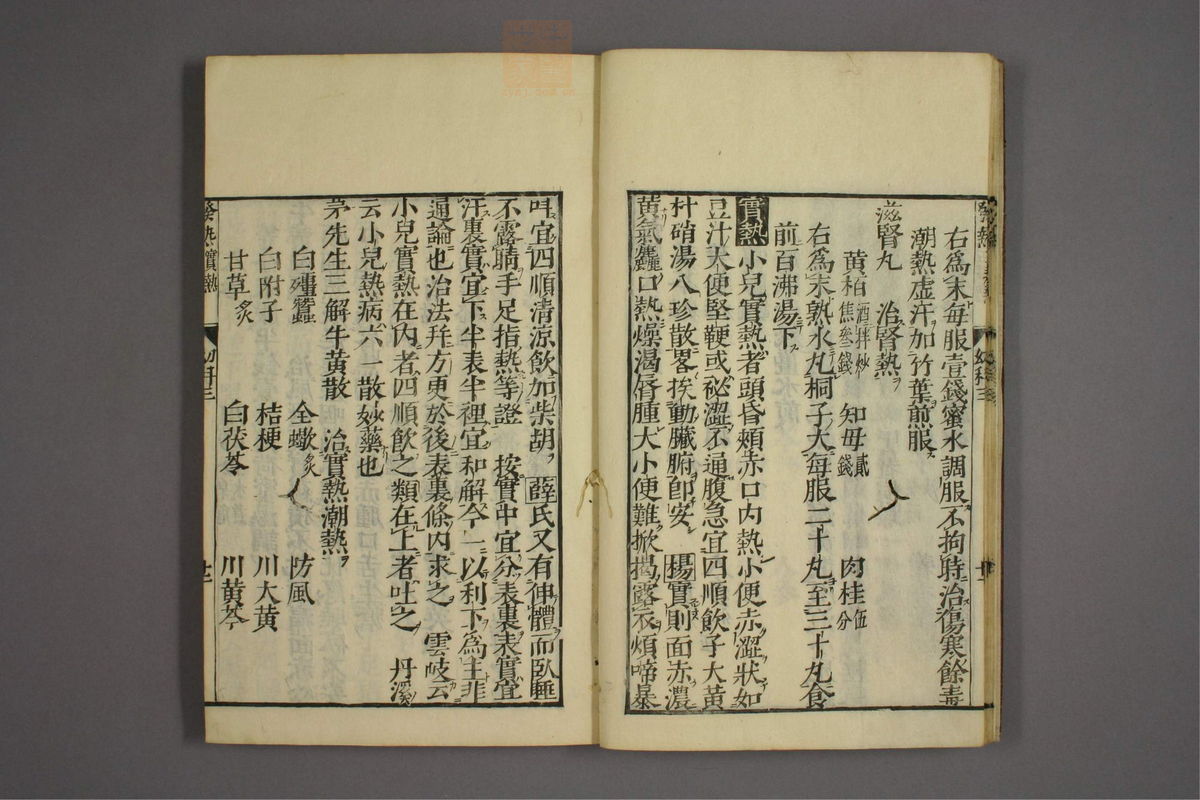 右爲末每服壹錢蜜水調服不拘時治傷寒餘毒
潮熱虛汗加竹葉煎服
滋腎丸　治腎熱
黃栢酒拌炒焦叁錢　知毋貳錢　肉桂伍分
右爲末熟水丸桐子大每服二十丸至三十丸食
前百沸湯下
實熱　小兒實熱者頭昏頰赤口内熱小便赤澀狀如
豆汁大便堅鞕或祕澀不通腹急宜四順飲子大黃
朴硝湯八珍散畧挨動臟腑卽安　楊實則面赤濃
黃氣麤口熱燥渴唇腫大小便難掀揭露衣煩啼暴
叫宜四順清凉飲加柴胡　薛氏又有伸體而臥睡
不露睛手足指熱等證　按實中宜分表裏表實宜
汗裏實宜下半表半裡宜和解今一以利下爲主非
通論也治法幷方更於後表裏條内求之　雲岐云
小兒實熱在内者四順飲之類在上者吐之　丹溪
云小兒熱病六一散妙藥也
茅先生三解牛黃散　治實熱潮熱
白殭蠶　全蠍炙　防風
白附子　桔梗　川大黃
甘草炙　白茯苓　川黃芩
發熱實熱
幼科三